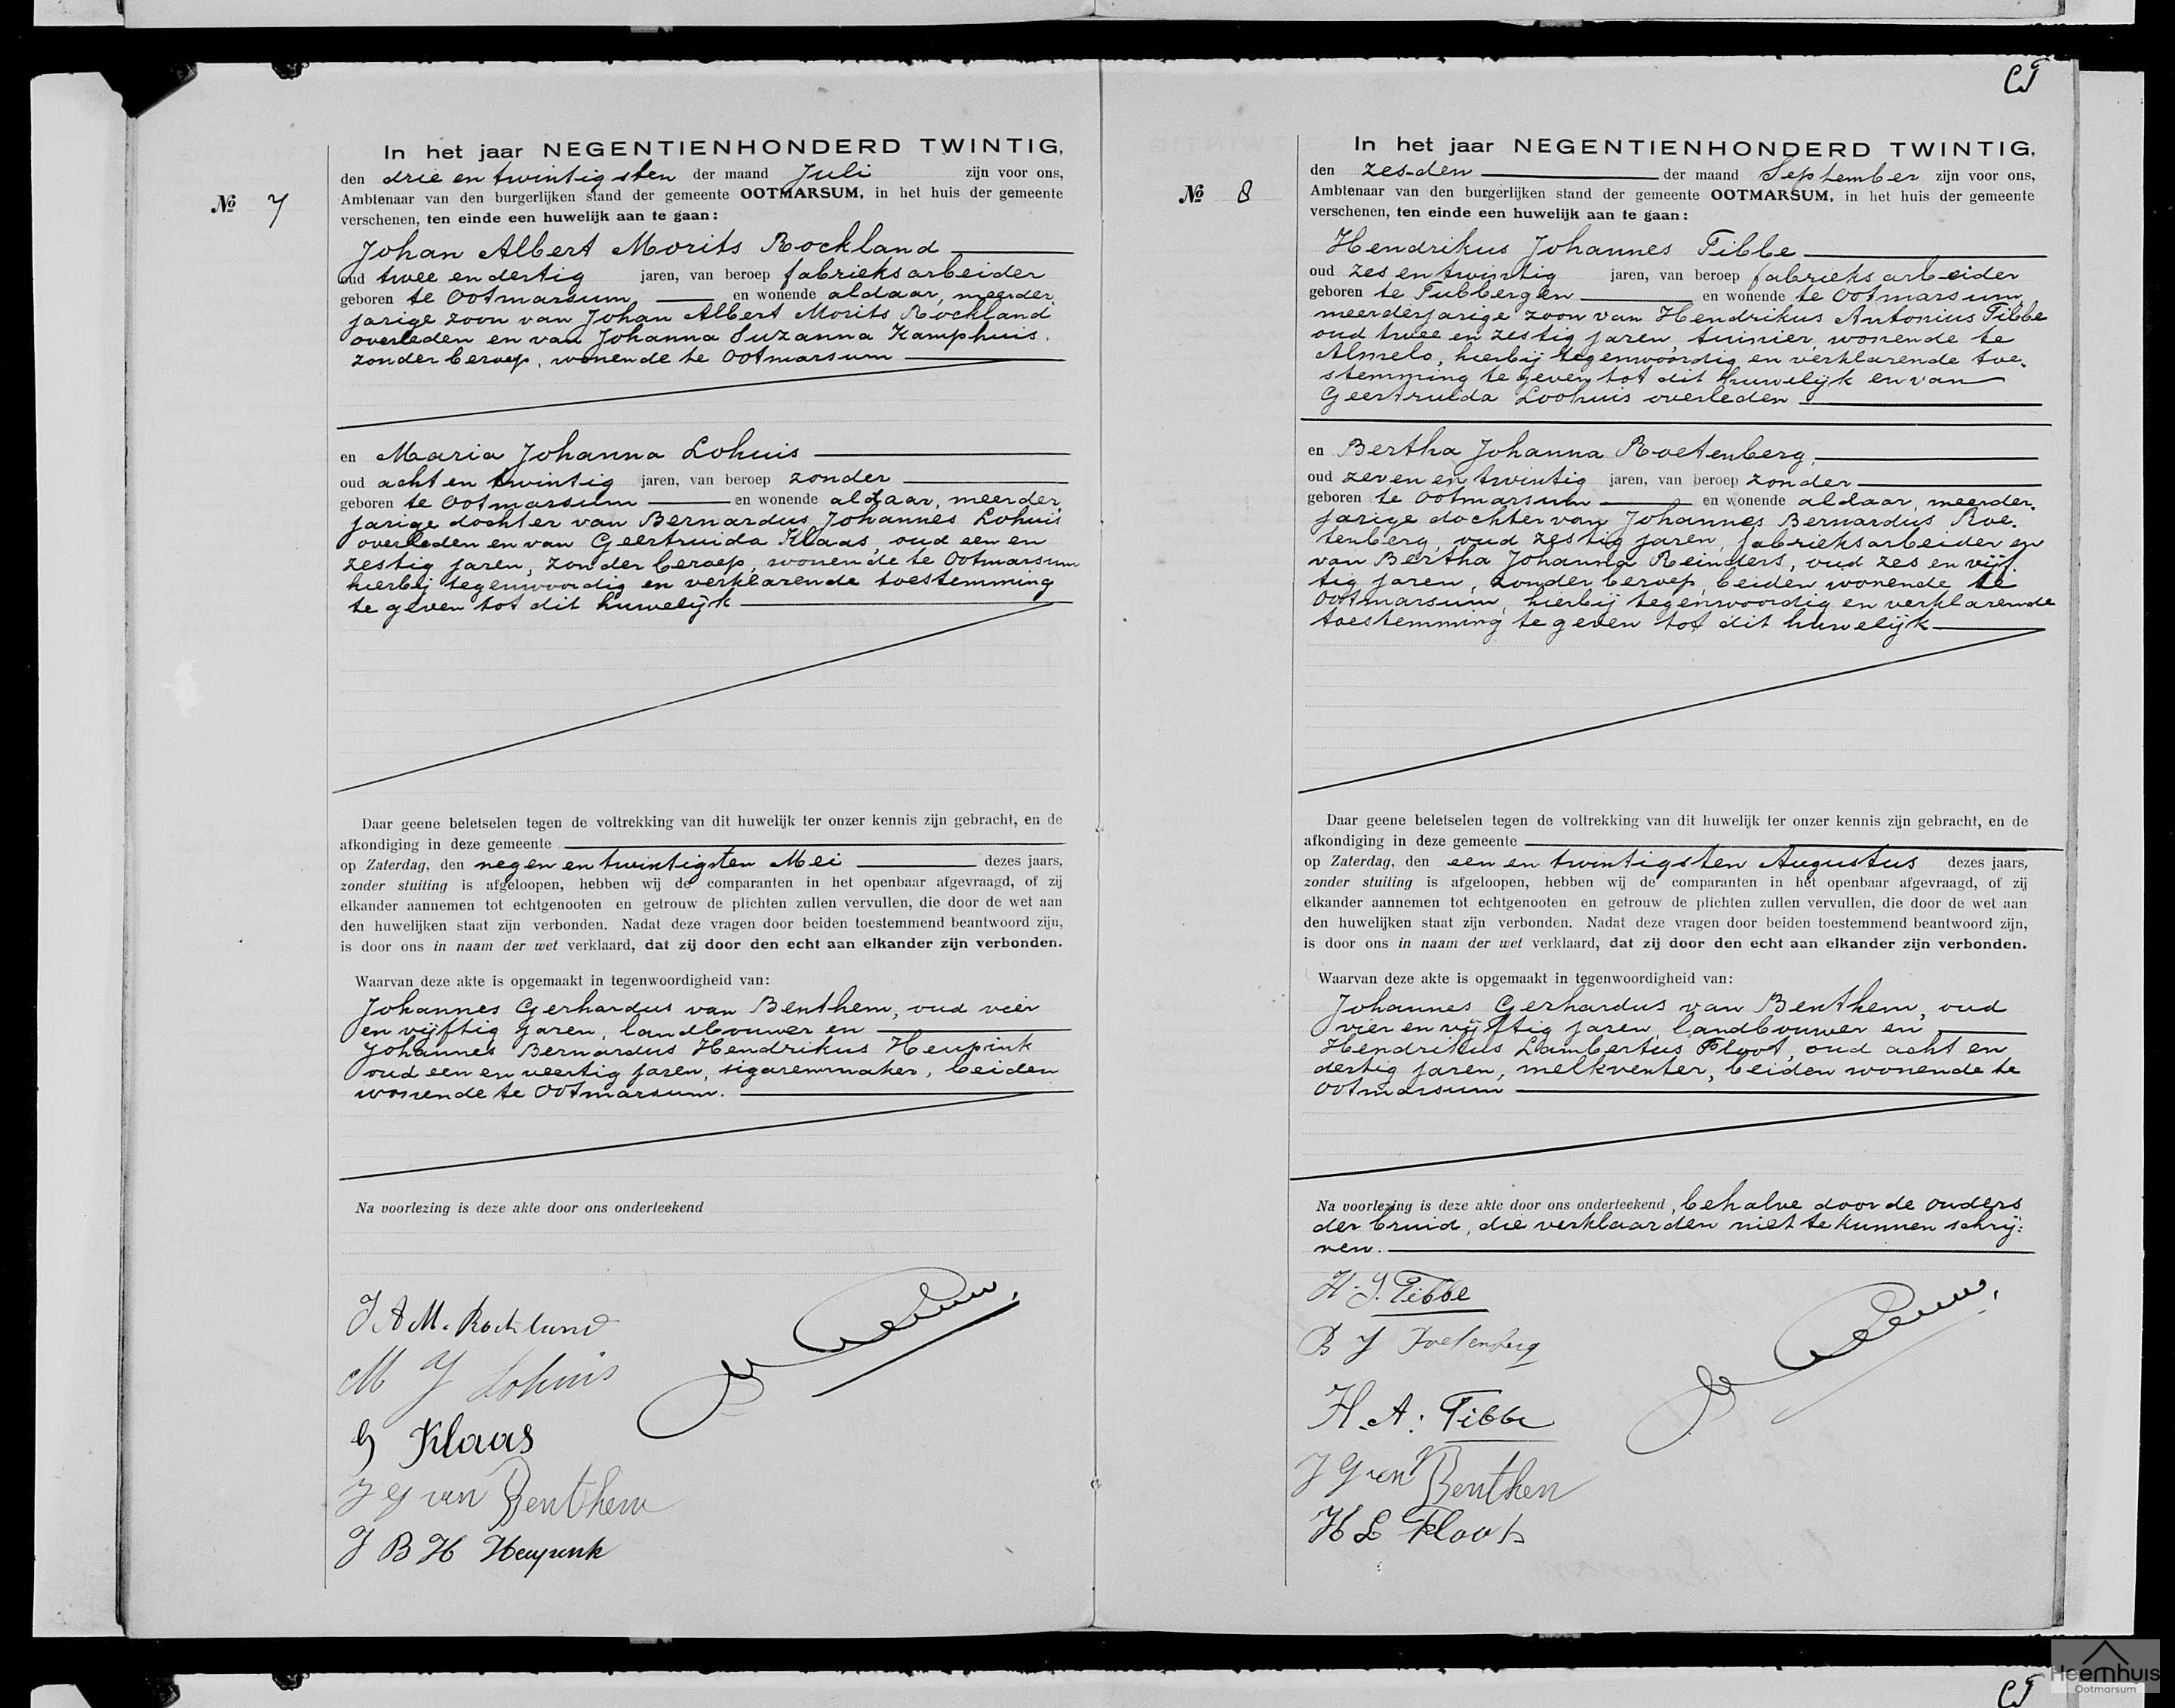 In het jaar NEGENTIENHONDERD TWINTIG,
den drie en twintigsten der maand Juli zijn voor ons,
No 7 Ambtenaar van den burgerlijken stand der gemeente OOTMARSUM, in het huis der gemeente
verschenen, ten einde een huwelijk aan te gaan:
Johan Albert Morits Rockland
oud twee en dertig jaren, van beroep fabrieksarbeider
geboren te Ootmarsum en wonende aldaar, meerder,
jarige zoon van Johan Albert Morits Rockland
overleden en van Johanna Suzanna Kamphuis.
zonder beroep, wonende te Ootmarsum
en Maria Johanna Lohuis
oud acht en twintig jaren, van beroep zonder
geboren te Ootmarsum en wonende aldaar, meerder,
jarige dochter van Bernardus Johannes Lohuis
overleden en van Geertruida Klaas, oud een en
zestig jaren, zonder beroep, wonende te Ootmarsum
hierbij tegenwoordig en verklarende toestemming
te geven tot dit huwelijk
Daar geene beletselen tegen de voltrekking van dit huwelijk ter onzer kennis zijn gebracht, en de
afkondiging in deze gemeente
op Zaterdag, den negen en twintigsten Mei dezes jaars,
zonder stuiting is afgeloopen, hebben wij de comparanten in het openbaar afgevraagd, of zij
elkander aannemen tot echtgenooten en getrouw de plichten zullen vervullen, die door de wet aan
den huwelijken staat zijn verbonden. Nadat deze vragen door beiden toestemmend beantwoord zijn,
is door ons in naam der wet verklaard, dat zij door den echt aan elkander zijn verbonden.
Waarvan deze akte is opgemaakt in tegenwoordigheid van:
Johannes Gerhardus van Benthem, oud vier
en vijftig jaren, landbouwer en
Johannes Bernardus Hendrikus Heupink
oud een en veertig jaren, sigarenmaker, beiden
wonende te Ootmarsum.
Na voorlezing is deze akte door ons onderteekend
J A M. Rockland
M J Lohuis
G Klaas
J G van Benthem
J B H Heupink
CJ
In het jaar NEGENTIENHONDERD TWINTIG,
den zesden der maand September zijn voor ons,
No 8 Ambtenaar van den burgerlijken stand der gemeente OOTMARSUM, in het huis der gemeente
verschenen, ten einde een huwelijk aan te gaan:
Hendrikus Johannes Tibbe
oud zes en twintig jaren, van beroep fabrieksarbeider
geboren te Tubbergen en wonende te Ootmarsum
meerderjarige zoon van Hendrikus Antonius Tibbe
oud twee en zestig jaren, tuinier, wonende te
Almelo, hierbij tegenwoordig en verklarende toe-
stemming te geven tot dit huwelijk en van
Geertruida Loohuis overleden
en Bertha Johanna Roetenberg,
oud zeven en twintig jaren, van beroep zonder
geboren te Ootmarsum en wonende aldaar, meerder,
jarige dochter van Johannes Bernardus Roe,
tenberg, oud zestig jaren, fabrieksarbeider en
van Bertha Johanna Reinders, oud zes en vijf,
tig jaren, zonder beroep, beiden wonende te
Ootmarsum, hierbij tegenwoordig en verklarende
toestemming te geven tot dit huwelijk
Daar geene beletselen tegen de voltrekking van dit huwelijk ter onzer kennis zijn gebracht, en de
afkondiging in deze gemeente
op Zaterdag, den een en twintigsten Augustus dezes jaars,
zonder stuiting is afgeloopen, hebben wij de comparanten in het openbaar afgevraagd, of zij
elkander aannemen tot echtgenooten en getrouw de plichten zullen vervullen, die door de wet aan
den huwelijken staat zijn verbonden. Nadat deze vragen door beiden toestemmend beantwoord zijn,
is door ons in naam der wet verklaard, dat zij door den echt aan elkander zijn verbonden.
Waarvan deze akte is opgemaakt in tegenwoordigheid van:
Johannes Gerhardus van Benthem, oud
vier en vijftig jaren, landbouwer en
Hendrikus Lambertus Floot, oud acht en
dertig jaren, melkventer, beiden wonende te
Ootmarsum
Na voorlezing is deze akte door ons onderteekend, behalve door de ouders
der bruid, die verklaarden niet te kunnen schrij:
ven.
H. J. Tibbe
B J Roetenberg
H. A. Tibbe
J G van Benthem
H L Floot
Heemhuis
Ootmarsum
CJ